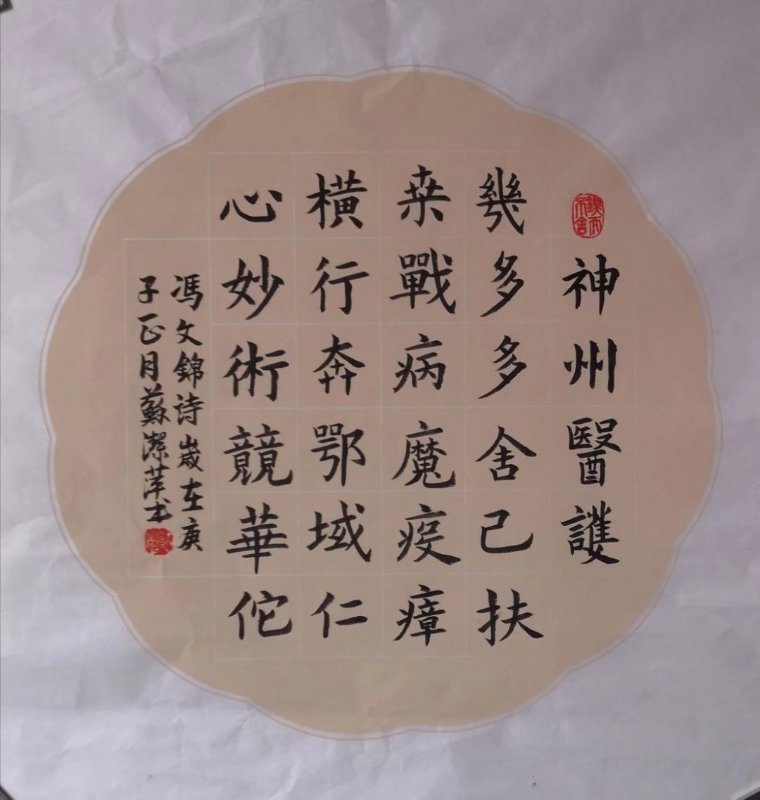 神州醫護
幾多多舍己扶
桒戰病魔疫瘴
橫行奔鄂域仁
心妙術競華佗
馮文錦诗嵗在庚
子正月蘇潔萍书